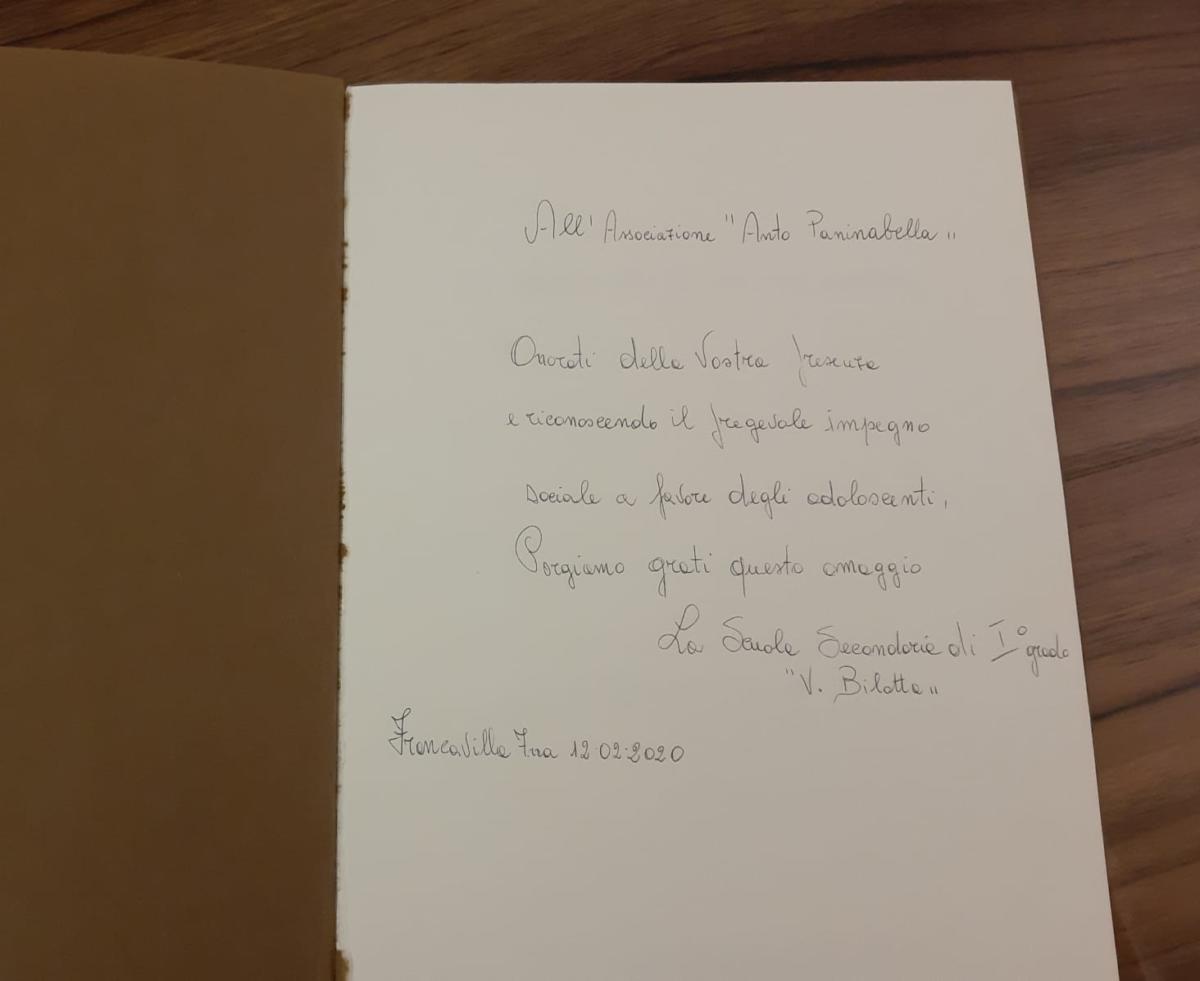 All'Associazione "Anto Paninabella"
Onorati della Vostra presenza
e riconoscendo il pregevole impegno
sociale a favore degli adolescenti,
Porgiamo grati questo omaggio
La Scuola Secondaria di I° grado
"V. Bilotta"
Francavilla F.na 12.02.2020